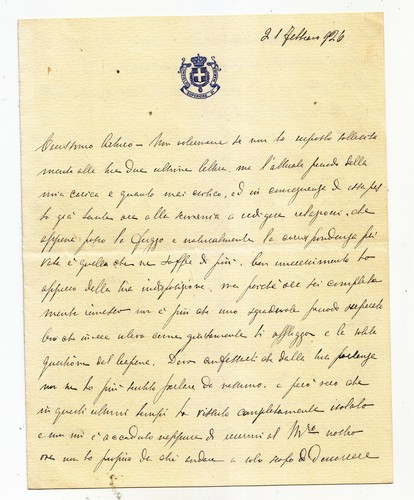 21 Febbraio 926
Carissimo Arturo – Non volermene se non ho risposto sollecita
mente alle tue due ultime lettere, ma l'attuale periodo della
mia carica è quanto mai caotico, ed in conseguenza di essa pas
so già tante ore alla scrivania a redigere relazioni, che
appena posso la fuggo e naturalmente la corrispondenza pri
vata è quella che ne soffre di più. Con rincrescimento ho
appreso della tua indisposizione, ma perché ora sei completa
mente rimesso non è più che uno sgradevole ricordo
che invece ulcera come giustamente ti affligge è la solita
questione del
Devo confessarti che dalla tua partenza
non ne ho più sentito parlare da nessuno. È però vero che
in questi ultimi tempi ho vissuto completamente isolato
e non mi è accaduto neppure di recarmi al Mre nostro
ora non ho proprio da chi andare a solo scopo di